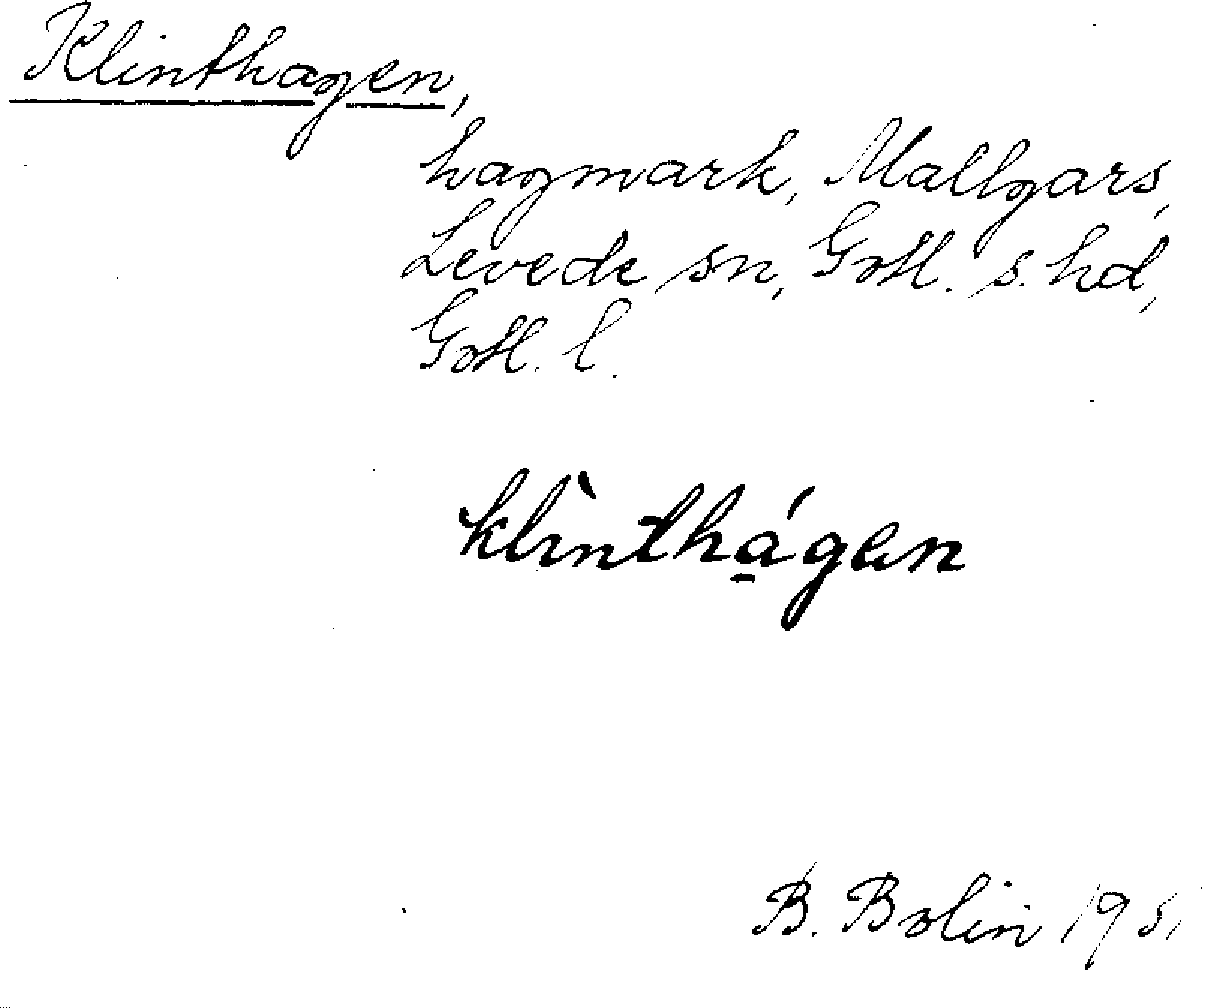 Klinthagen,
hagmark, Mallgars,
Levede sn, Gotl. s. hd,
Gotl. l.
klìnthá̱gen
B. Bolin 1951